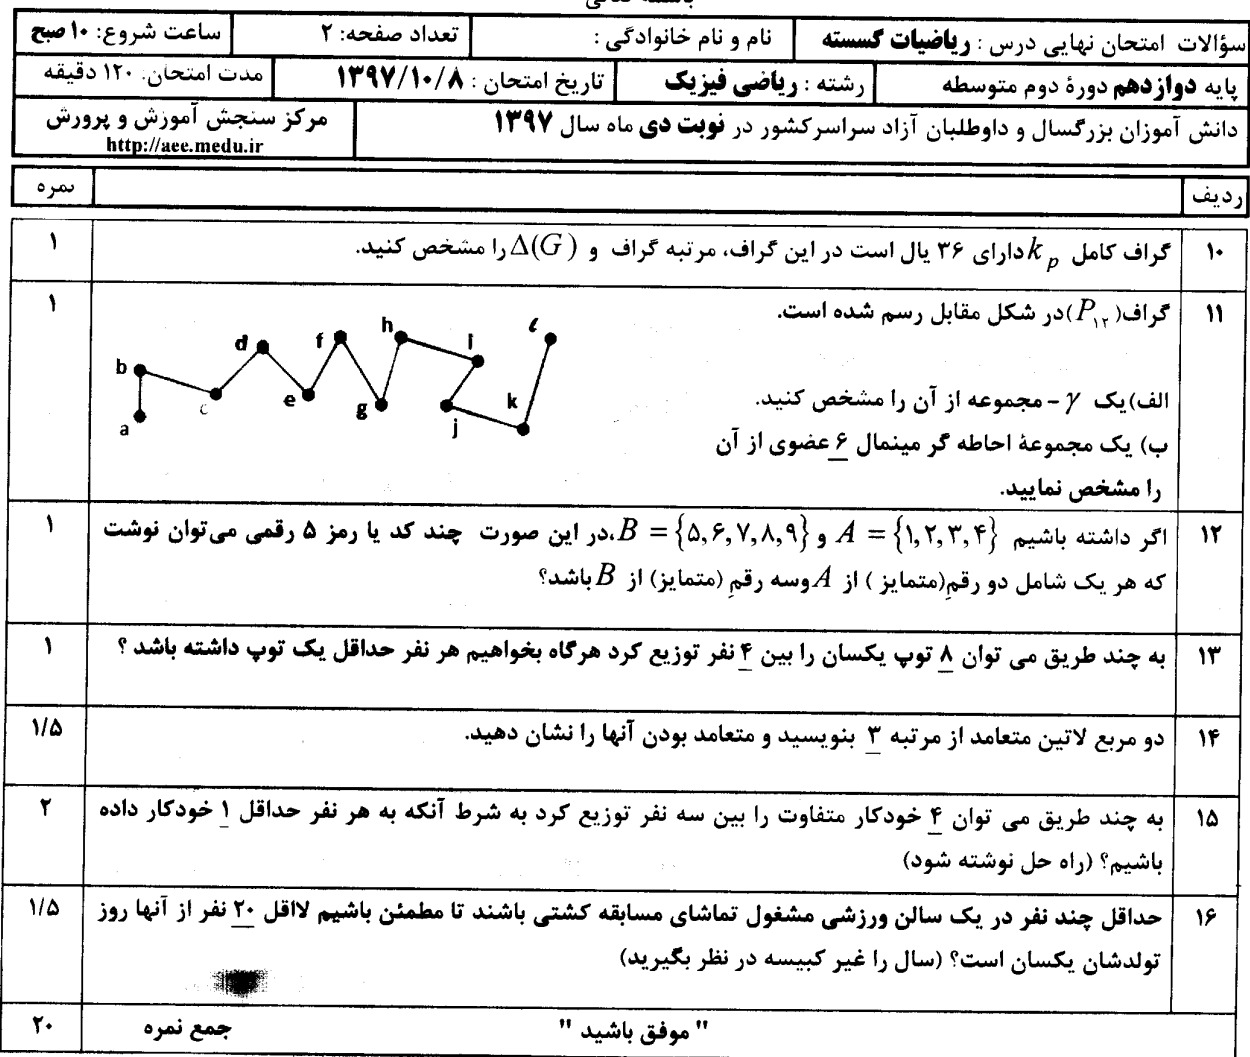 باسمه تعالی
سؤالات امتحان نهایی درس : ریاضیات گسسته
نام و نام خانوادگی :
تعداد صفحه: ۲
ساعت شروع: ۱۰ صبح
پایه دوازدهم دورهٔ دوم متوسطه
رشته : ریاضی فیزیک
تاریخ امتحان : ۱۳۹۷/۱۰/۸
مدت امتحان: ۱۲۰ دقیقه
دانش آموزان بزرگسال و داوطلبان آزاد سراسرکشور در نوبت دی ماه سال ۱۳۹۷
مرکز سنجش آموزش و پرورش
http://aee.medu.ir
ردیف
نمره
۱۰
گراف کامل k p دارای ۳۶ یال است در این گراف، مرتبه گراف و Δ(G) را مشخص کنید.
۱
۱۱
گراف(P۱۲)در شکل مقابل رسم شده است.
۱
الف)یک γ - مجموعه از آن را مشخص کنید.
ب) یک مجموعهٔ احاطه گر مینمال ۶ عضوی از آن
را مشخص نمایید.
a
b
c
d
e
f
g
h
i
j
k
ℓ
۱۲
اگر داشته باشیم A = {۱,۲,۳,۴} و B = {۵,۶,۷,۸,۹}،در این صورت چند کد یا رمز ۵ رقمی می‌توان نوشت
که هر یک شامل دو رقمِ(متمایز ) از A وسه رقمِ (متمایز) از B باشد؟
۱
۱۳
به چند طریق می توان ۸ توپ یکسان را بین ۴ نفر توزیع کرد هرگاه بخواهیم هر نفر حداقل یک توپ داشته باشد ؟
۱
۱۴
دو مربع لاتین متعامد از مرتبه ۳ بنویسید و متعامد بودن آنها را نشان دهید.
۱/۵
۱۵
به چند طریق می توان ۴ خودکار متفاوت را بین سه نفر توزیع کرد به شرط آنکه به هر نفر حداقل ۱ خودکار داده
باشیم؟ (راه حل نوشته شود)
۲
۱۶
حداقل چند نفر در یک سالن ورزشی مشغول تماشای مسابقه کشتی باشند تا مطمئن باشیم لااقل ۲۰ نفر از آنها روز
تولدشان یکسان است؟ (سال را غیر کبیسه در نظر بگیرید)
۱/۵
" موفق باشید "
جمع نمره
۲۰